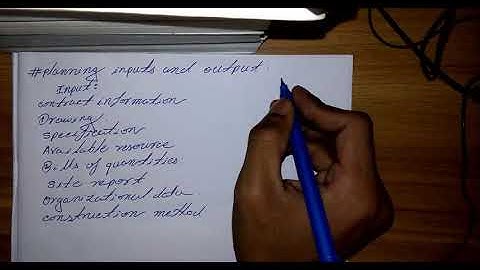 #planning inputs and output.
Input:
contract information
Drawing
specification
Available resource
Bills of quantities
site report
organizational data
construction method